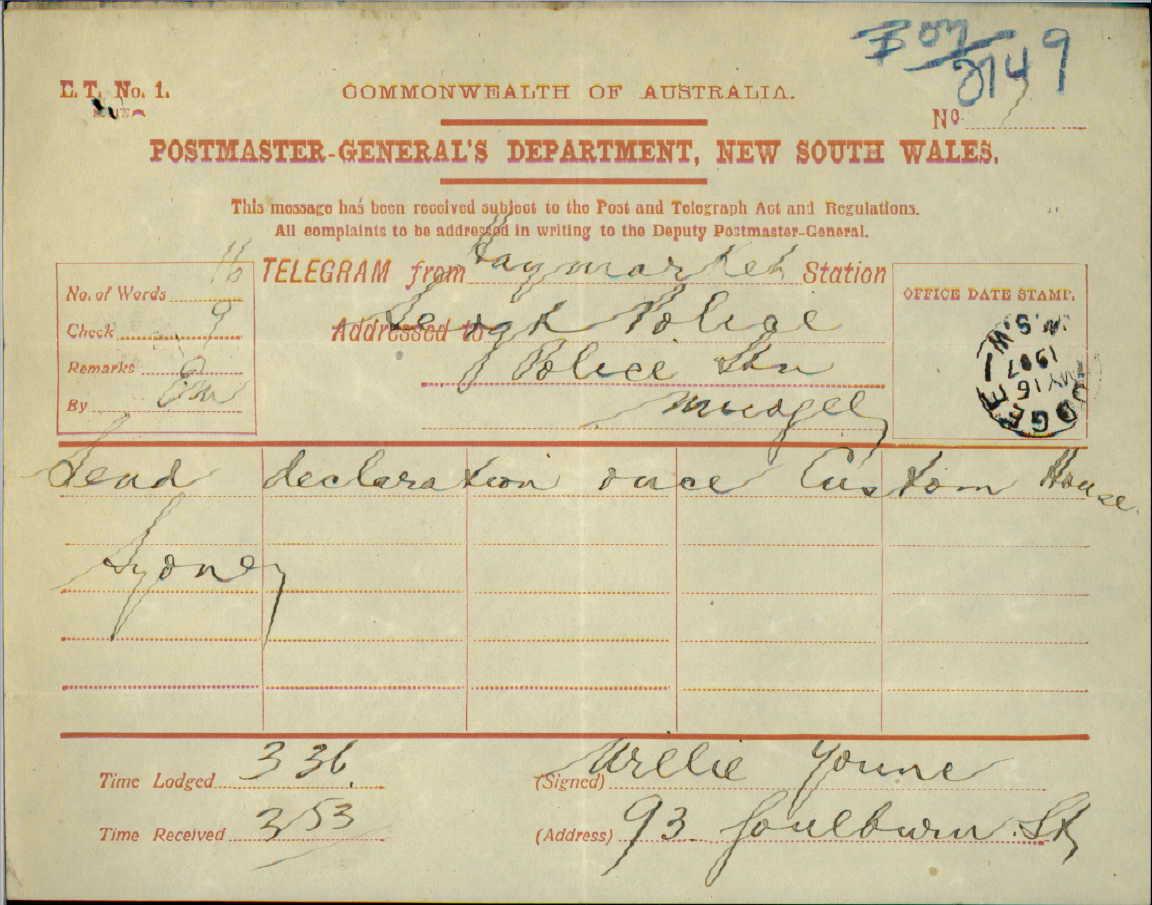 E. T. No. 1.
COMMONWEALTH OF AUSTRALIA.
No.
POSTMASTER-GENERAL'S DEPARTMENT, NEW SOUTH WALES.
This message has been received subject to the Post and Telegraph Act and Regulations.
All complaints to be addressed in writing to the Deputy Postmaster-General.
TELEGRAM from Haymarket Station
No. of Words 16
Check 9
Remarks
By
Addressed to Leigh Police
Police Stn
Mudgee
OFFICE DATE STAMP.
MUDGEE
MY 16
1907
N.S.W
Send declaration once Custom House
Sydney
Time Lodged 3 36
Time Received 3 53
(Signed) Willie Youne
(Address) 93 Goulburn St